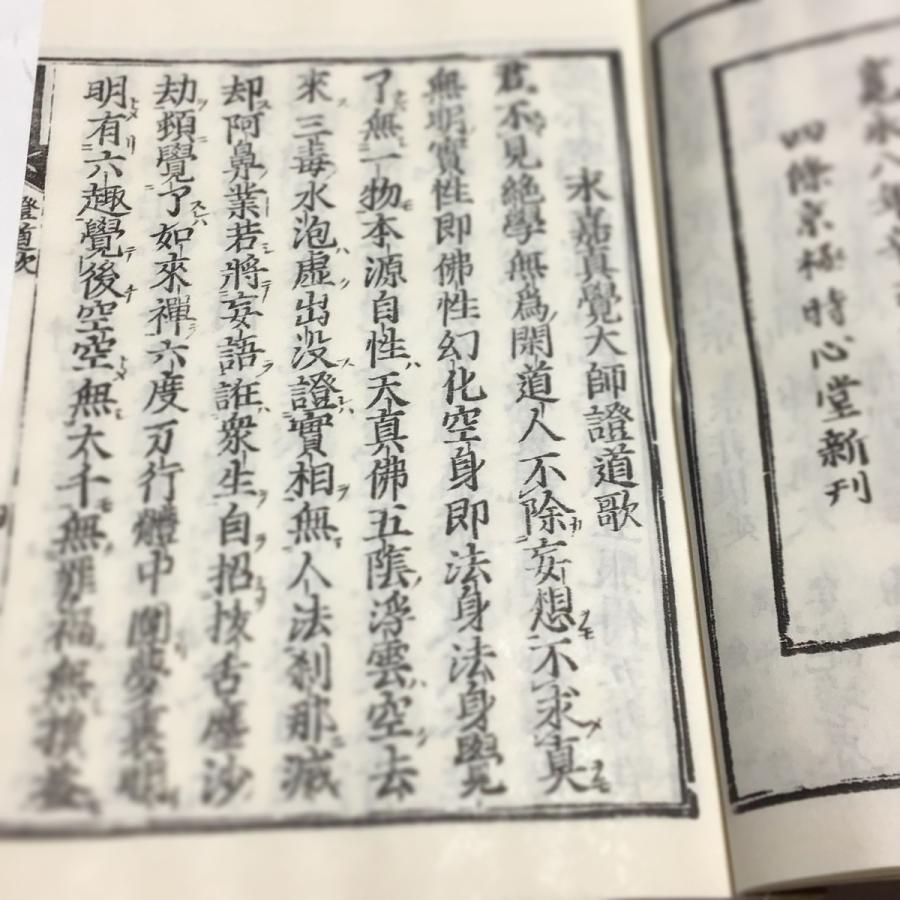 寛永八年
四條京極時心堂新刊
永嘉真覺大師證道歌
君不見絶學無爲閑道人不除妄想不求真
無明實性即佛性幻化空身即法身法身覺
了無一物本源自性天真佛五陰浮雲空去
來三毒水泡虚出没證實相無人法刹那滅
却阿鼻業若將妄語誑衆生自招拔舌塵沙
劫頓覺了如來禪六度万行體中圓夢裏明
明有六趣覺後空空無大千無罪福無損益
證道